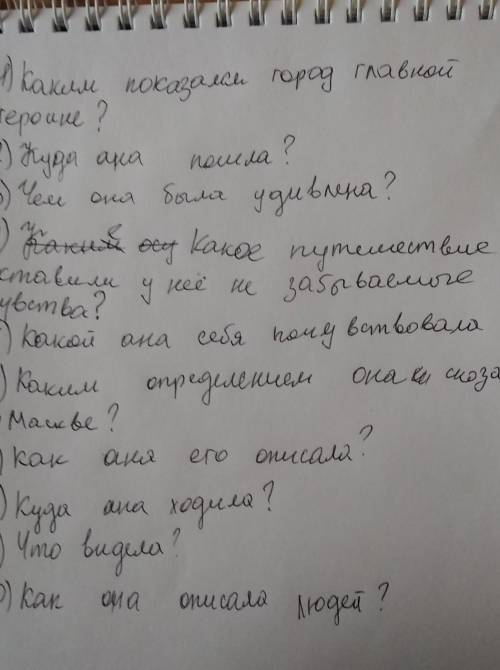 1) Каким показался город главной
героине?
2) Куда ана пошла?
) Чем она была удивлена?
) Какое путешествие
ставили у неё не забываемое
увства?
) Какой ана себя почувствовала
) Каким определением она сказа
Маскве?
) Как аня его описала?
) Куда ана ходила?
) Что видела?
0) Как она описала людей?